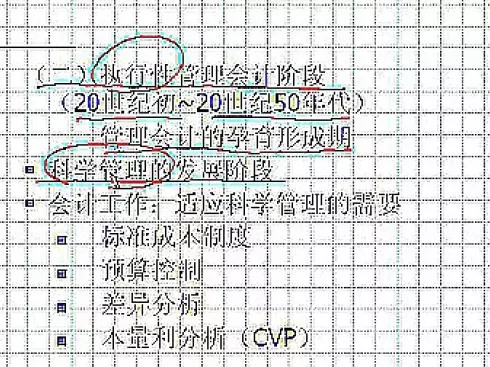 （二）执行性管理会计阶段
（20世纪初~20世纪50年代）
管理会计的孕育形成期
科学管理的发展阶段
会计工作：适应科学管理的需要
标准成本制度
预算控制
差异分析
本量利分析（CVP）